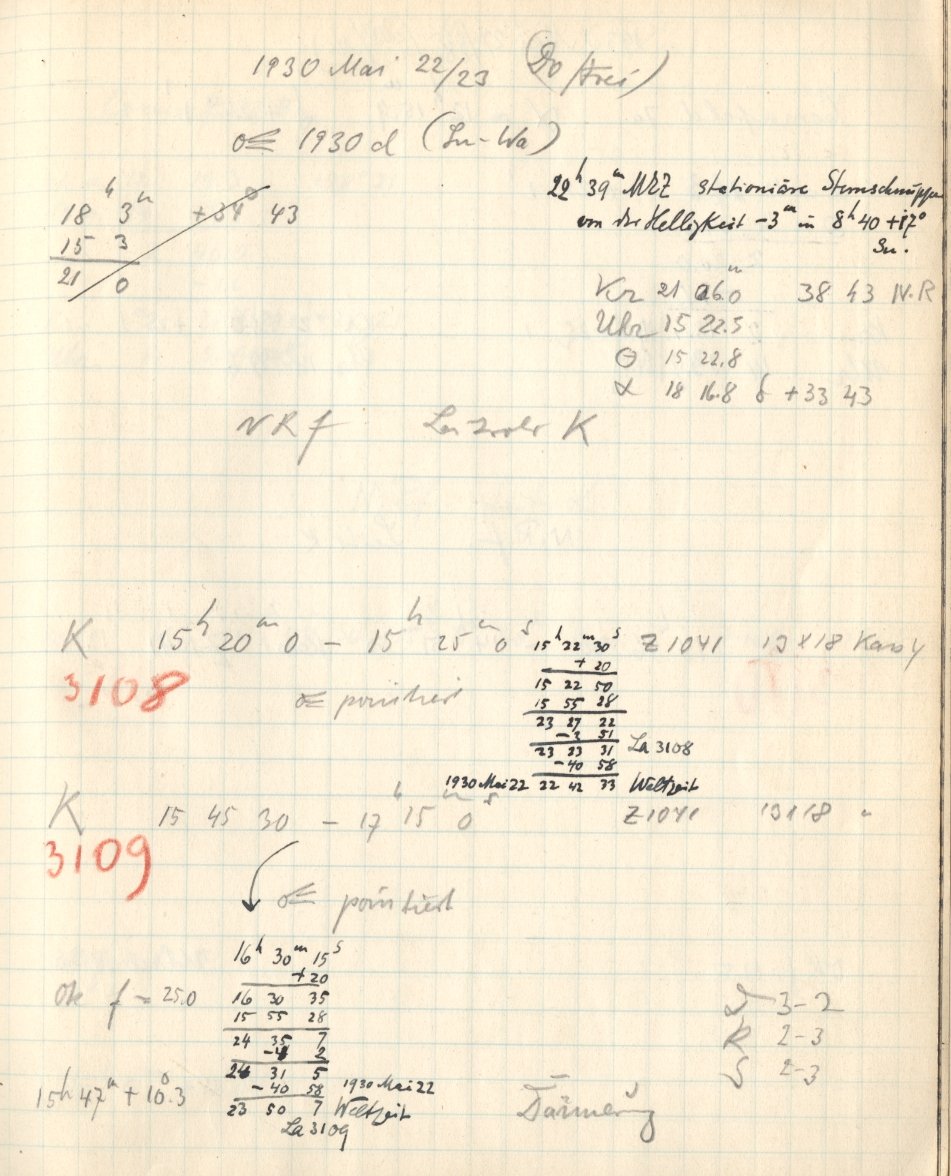 1930 Mai 22/23 (Do/Frei)
☄ 1930 d (Su-Wa)
22ʰ 39ᵐ MEZ stationäre Sternschnuppe
von der Helligkeit -3ᵐ in 8ʰ 40 +17°
Su.
18ʰ 3ᵐ +34° 43
15 3
21 0
Kr 21 06.0ᵐ 38 43 N.R
Uhr 15 22.5
Θ 15 22.8
α 18 16.8 δ +33 43
NRf Leitrohr K
K 15ʰ 20ᵐ 0 – 15ʰ 25ᵐ 0ˢ Z 1041 13×18
3108
☄ pointiert
15ʰ 22ᵐ 30ˢ
+ 20
15 22 50
15 55 28
23 27 22
-3 51
23 23 31 La 3108
-40 58
1930 Mai 22 22 42 33 Weltzeit
K 15 45 30 – 17ʰ 15ᵐ 0ˢ Z 1041 13×18 "
3109
☄ pointiert
16ʰ 30ᵐ 15ˢ
+20
16 30 35
15 55 28
24 35 7
-4 2
24 31 5
-40 58 1930 Mai 22
23 50 7 Weltzeit
La 3109
Ok f = 25.0
15ʰ 47ᵐ + 10°.3
D 3-2
R 2-3
S 2-3
Dämmerung